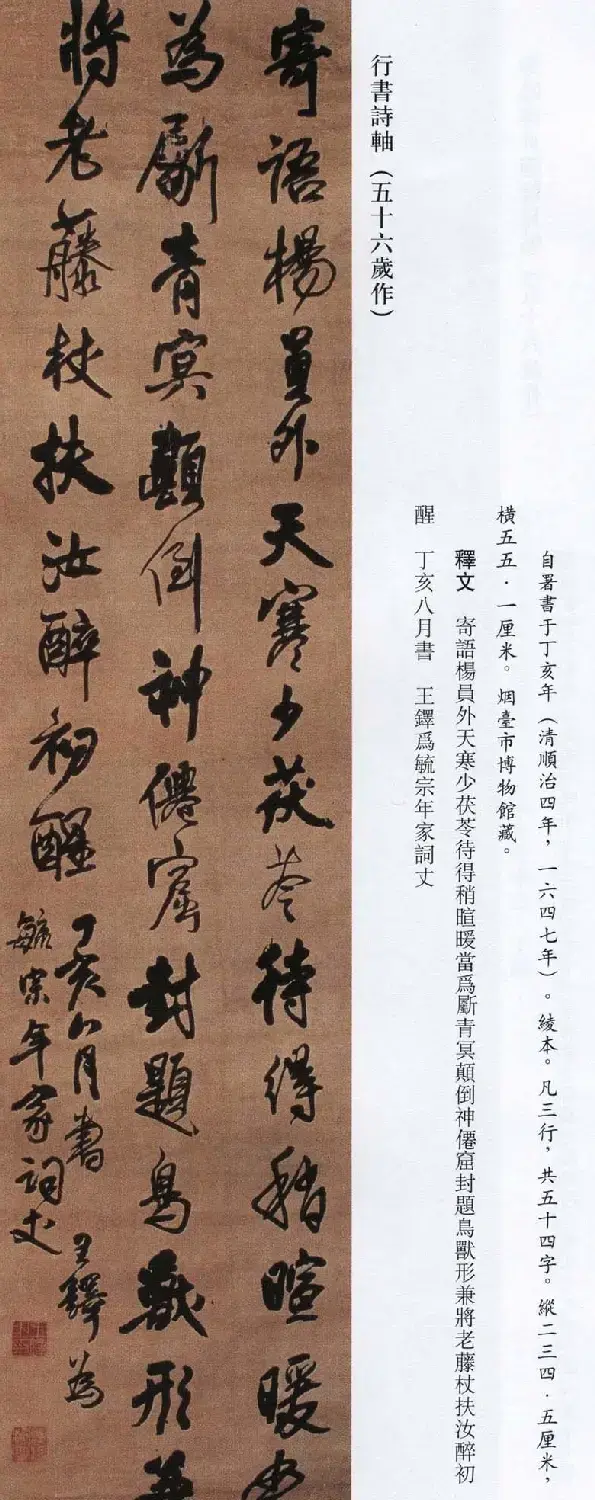 行書詩軸（五十六歲作）
自署書于丁亥年（清順治四年，一六四七年）。綾本。凡三行，共五十四字。縱二三四·五厘米，
橫五五·一厘米。烟臺市博物館藏。
釋文　寄語楊員外天寒少茯苓待得稍暄暖當爲斸青冥顛倒神僊窟封題鳥獸形兼將老藤杖扶汝醉初
醒　丁亥八月書　王鐸爲毓宗年家詞丈
寄語楊員外天寒少茯苓待得稍暄暖當
為斸青冥顛倒神僊窟封題鳥獸形兼
將老藤杖扶汝醉初醒
丁亥八月書　王鐸為
毓宗年家詞丈